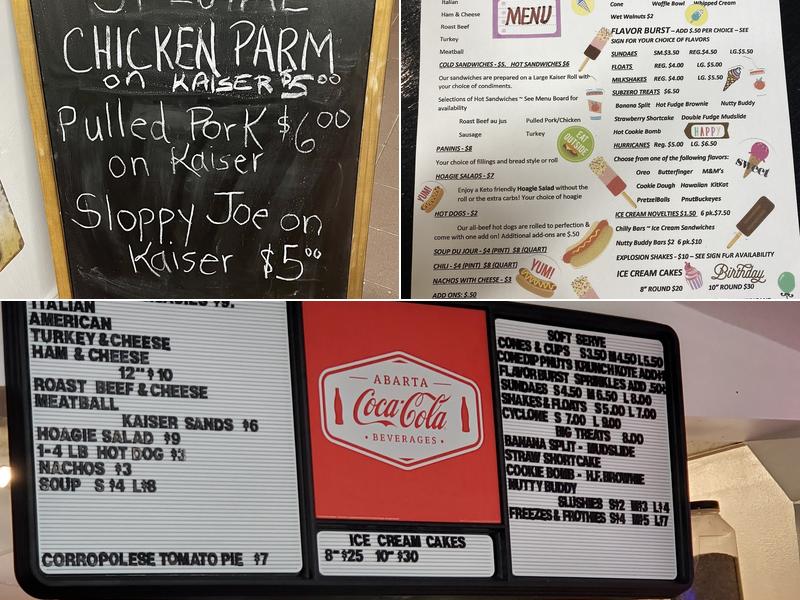 SPECIAL
CHICKEN PARM
on KAISER $5⁰⁰
Pulled Pork $6⁰⁰
on Kaiser
Sloppy Joe on
Kaiser $5⁰⁰
Italian
Ham & Cheese
Roast Beef
Turkey
Meatball
MENU
COLD SANDWICHES - $5. HOT SANDWICHES $6
Our sandwiches are prepared on a Large Kaiser Roll with
your choice of condiments.
Selections of Hot Sandwiches ~ See Menu Board for
availability
Roast Beef au jus Pulled Pork/Chicken
Sausage Turkey
EAT OUTSIDE
PANINIS - $8
Your choice of fillings and bread style or roll
HOAGIE SALADS - $7
YUM!
Enjoy a Keto friendly Hoagie Salad without the
roll or the extra carbs! Your choice of hoagie
HOT DOGS - $2
Our all-beef hot dogs are rolled to perfection &
come with one add on! Additional add-ons are $.50
SOUP DU JOUR - $4 (PINT) $8 (QUART)
CHILI - $4 (PINT) $8 (QUART)
YUM!
NACHOS WITH CHEESE - $3
ADD ONS: $.50
Cone Waffle Bowl Whipped Cream
Wet Walnuts $2
FLAVOR BURST – ADD $.50 PER CHOICE – SEE
SIGN FOR YOUR CHOICE OF FLAVORS
SUNDAES SM.$3.50 REG.$4.50 LG.$5.50
FLOATS REG. $4.00 LG. $5.00
MILKSHAKES REG. $4.00 LG. $5.50
SUBZERO TREATS $6.50
Banana Split Hot Fudge Brownie Nutty Buddy
Strawberry Shortcake Double Fudge Mudslide
Hot Cookie Bomb
HAPPY
HURRICANES Reg. $5.00 LG. $6.50
Choose from one of the following flavors:
sweet
Oreo Butterfinger M&M's
Cookie Dough Hawaiian KitKat
PretzelBalls PnutBuckeyes
ICE CREAM NOVELTIES $1.50 6 pk.$7.50
Chilly Bars ~ Ice Cream Sandwiches
Nutty Buddy Bars $2 6 pk.$10
EXPLOSION SHAKES - $10 – SEE SIGN FUR AVAILABILITY
ICE CREAM CAKES
Birthday
8" ROUND $20 10" ROUND $30
ITALIAN
AMERICAN
TURKEY & CHEESE
HAM & CHEESE
12" $10
ROAST BEEF & CHEESE
MEATBALL
KAISER SANDS $6
HOAGIE SALAD $9
1-4 LB HOT DOG $3
NACHOS $3
SOUP S $4 L $8
CORROPOLESE TOMATO PIE $7
ABARTA
Coca-Cola
BEVERAGES
ICE CREAM CAKES
8" $25 10" $30
SOFT SERVE
CONES & CUPS S3.50 M4.50 L5.50
CONEDIP PNUTS KRUNCHKOTE ADD
FLAVOR BURST SPRINKLES ADD .50
SUNDAES S4.50 M 6.50 L 8.00
SHAKES & FLOATS S 5.00 L 7.00
CYCLONE S 7.00 L 9.00
BIG TREATS 8.00
BANANA SPLIT - MUDSLIDE
STRAW SHORTCAKE
COOKIE BOMB - H.F. BROWNIE
NUTTY BUDDY
SLUSHIES S$2 M$3 L$4
FREEZES & FROTHIES S$4 M$5 L$7